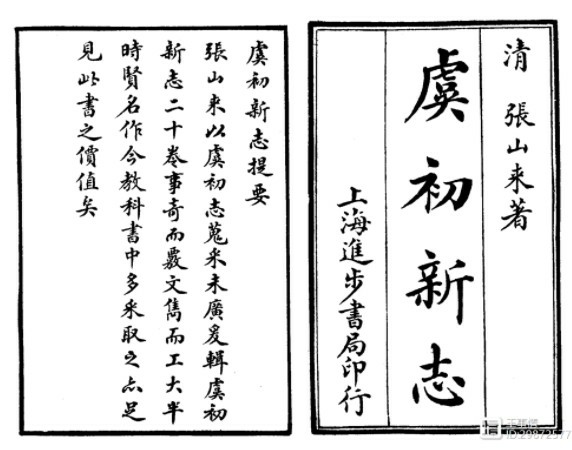 清 張山来著
虞初新志
上海進步書局印行
虞初新志提要
張山来以虞初志蒐采未廣爰輯虞初
新志二十卷事奇而覈文雋而工大半
時賢名作今教科書中多采取之亦足
見此書之價值矣
ID:29872577